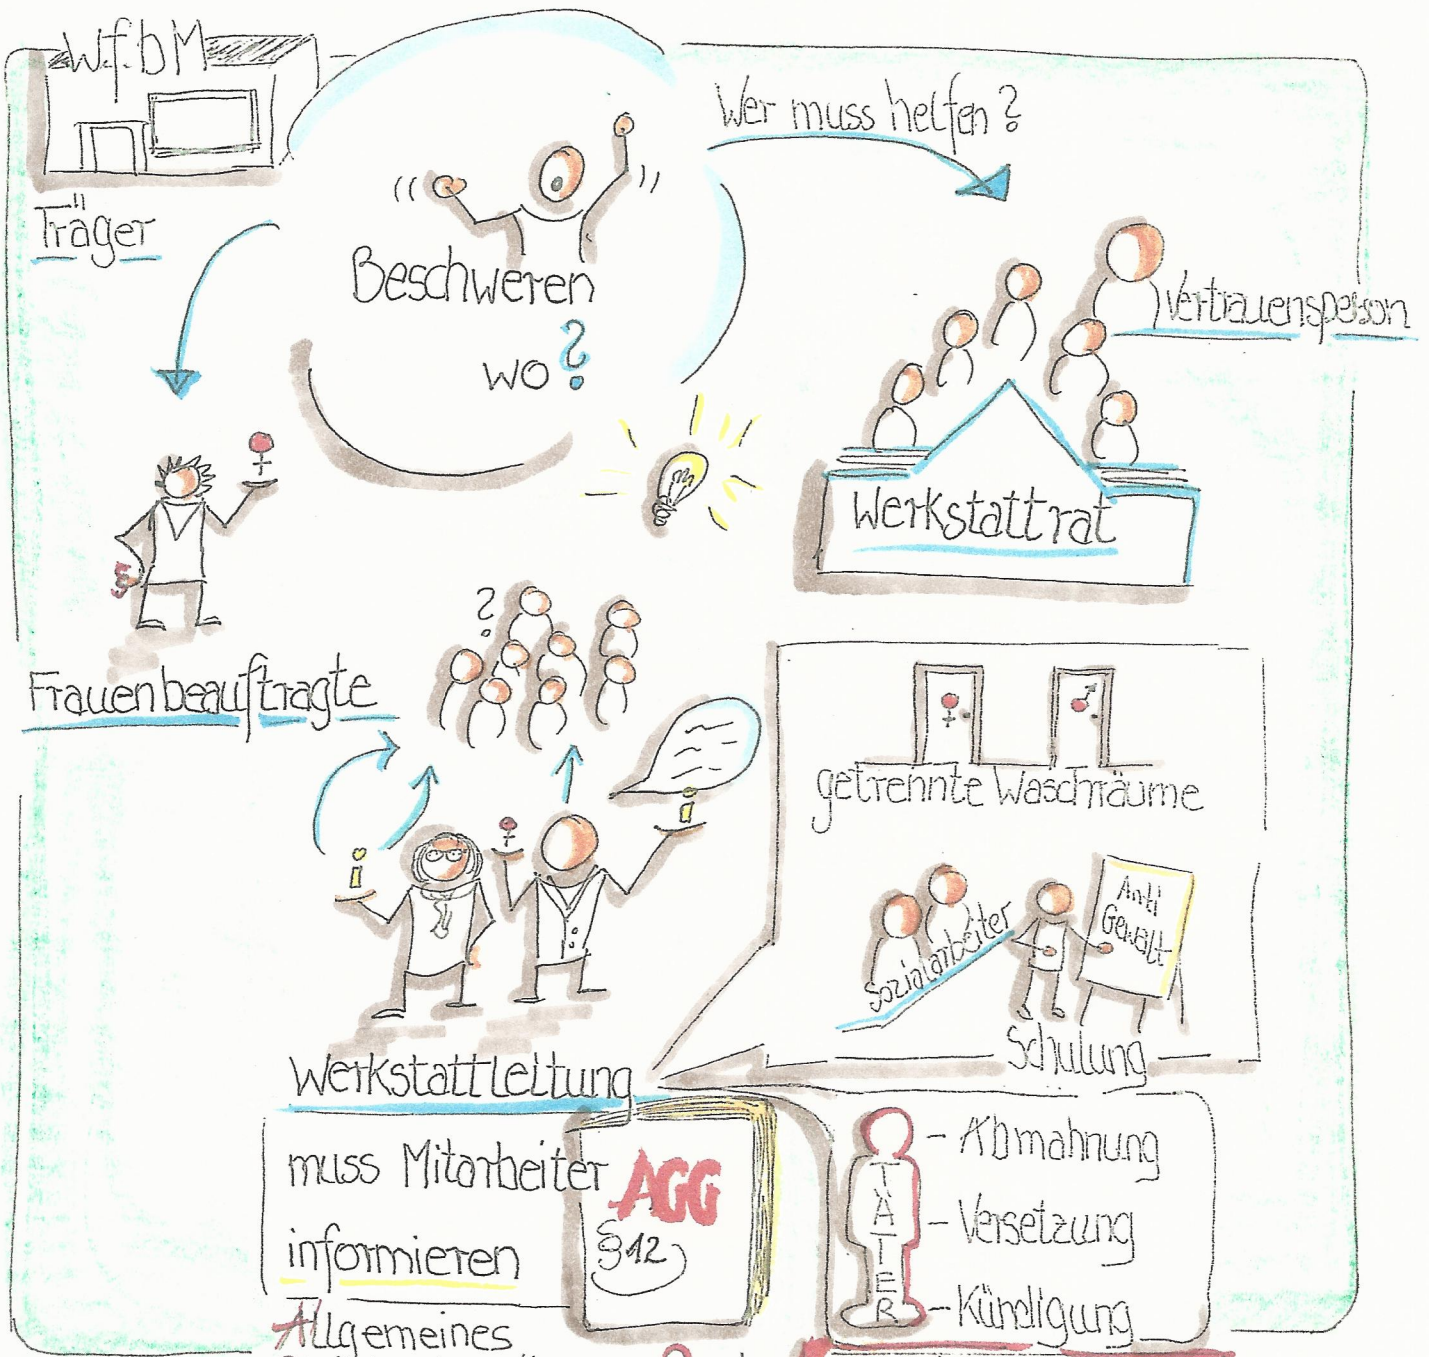 W.f.b M
Träger
Beschweren
wo?
Wer muss helfen?
Vertrauensperson
Werkstattrat
Frauenbeauftragte
?
i
i
getrennte Waschräume
Sozialarbeiter
Anti
Gewalt
Schulung
Werkstattleitung
muss Mitarbeiter
informieren
AGG
§12
TÄTER
- Abmahnung
- Versetzung
- Kündigung
Allgemeines